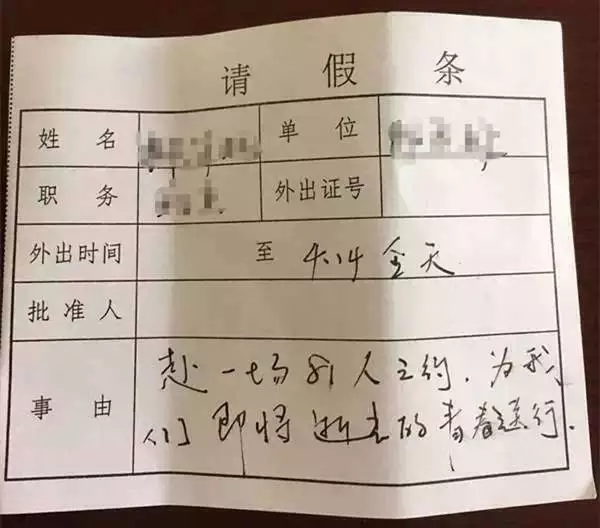 请假条
姓名 单位
职务 外出证号
外出时间 至 4.14 全天
批准人
事由 赴一场81人之约,为我
们即将逝去的青春送行.